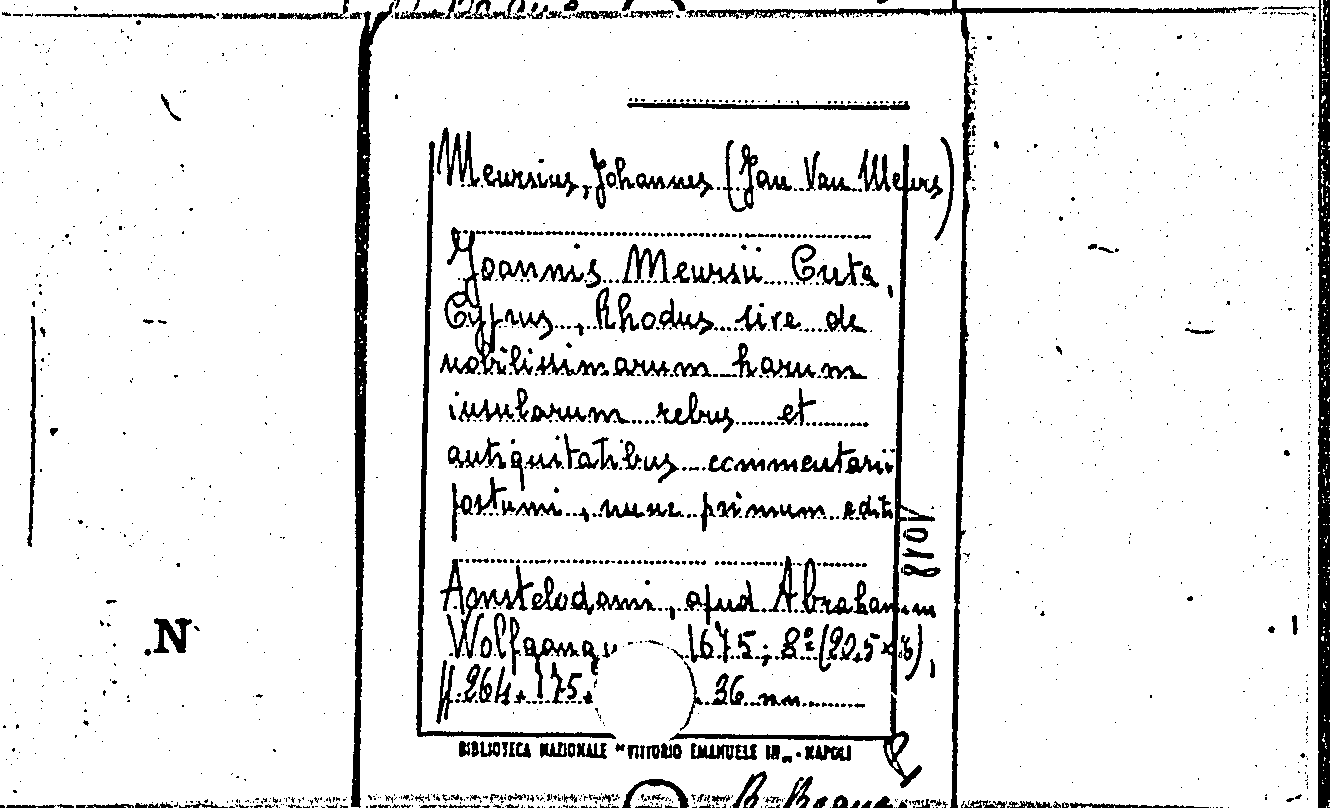 Meursius, Johannes (Jan Van Meurs)
Joannis Meursii Creta,
Cyprus, Rhodus sive de
nobilissimarum harum
insularum rebus et
antiquitatibus commentarii
postumi, nunc primum editi
1018
Amstelodami, apud Abrahamum
Wolfgang 1675; 8º (20,5x
ff. 264. 175. . 36 nn
.N
BIBLIOTECA NAZIONALE "VITTORIO EMANUELE III„ - NAPOLI